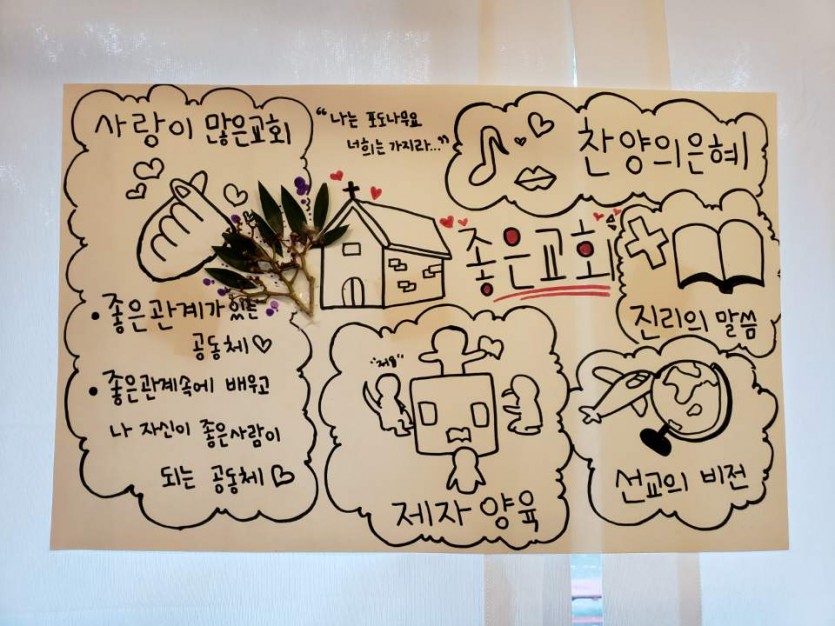 사랑이 많은교회
"나는 포도나무요
너희는 가지라..."
찬양의은혜
좋은교회
진리의 말씀
• 좋은관계가 있는
공동체
• 좋은관계속에 배우고
나 자신이 좋은사람이
되는 공동체
제자 양육
선교의 비전